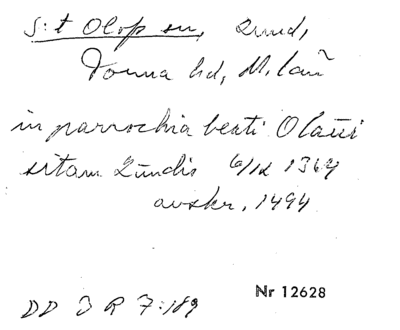 S:t Olop sn, Lund,
Torna hd, M.län
in parrochia beati Olaui
sitam Lundis 6/12 1364
avskr. 1494
DD 3 R 7:189
Nr 12628